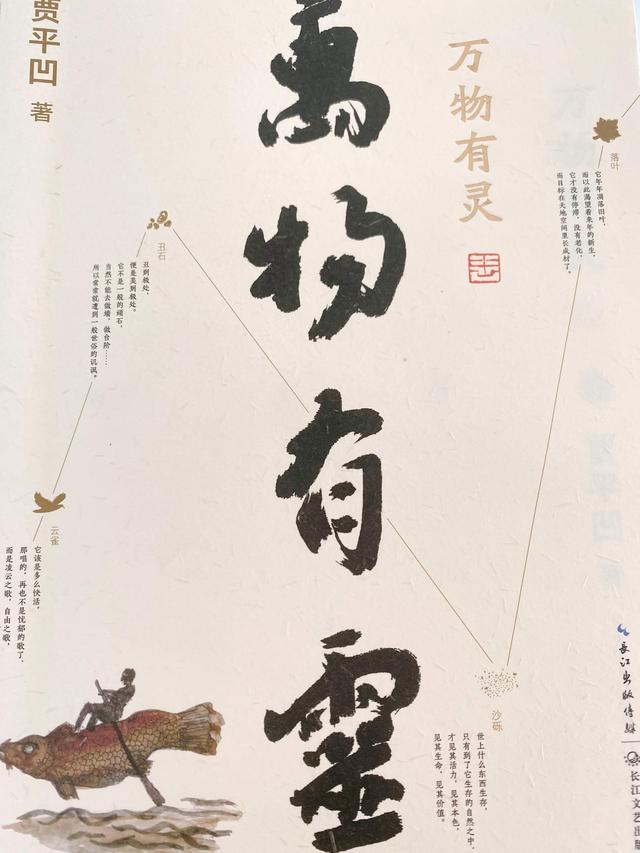 贾平凹 著
萬物有靈
万物有灵
落叶
它年年凋落旧叶，
而以此渴望着来年的新生，
它才没有停滞，没有老化，
而目标在天地空间里长成材了。
丑石
丑到极处，
便是美到极处。
它不是一般的顽石，
当然不能去做墙，做台阶……
所以常常就遭到一般世俗的讥讽。
云雀
它该是多么快活，
那唱的，再也不是忧郁的歌了，
而是凌云之歌，自由之歌，
沙砾
世上什么东西生存，
只有到了它生存的自然之中，
才见其活力，见其本色，
见其生命，见其价值。
長江出版傳媒
长江文艺出版